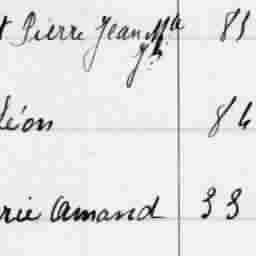 t Pierre Jean Mle 81
léon 84
rie Amand 33